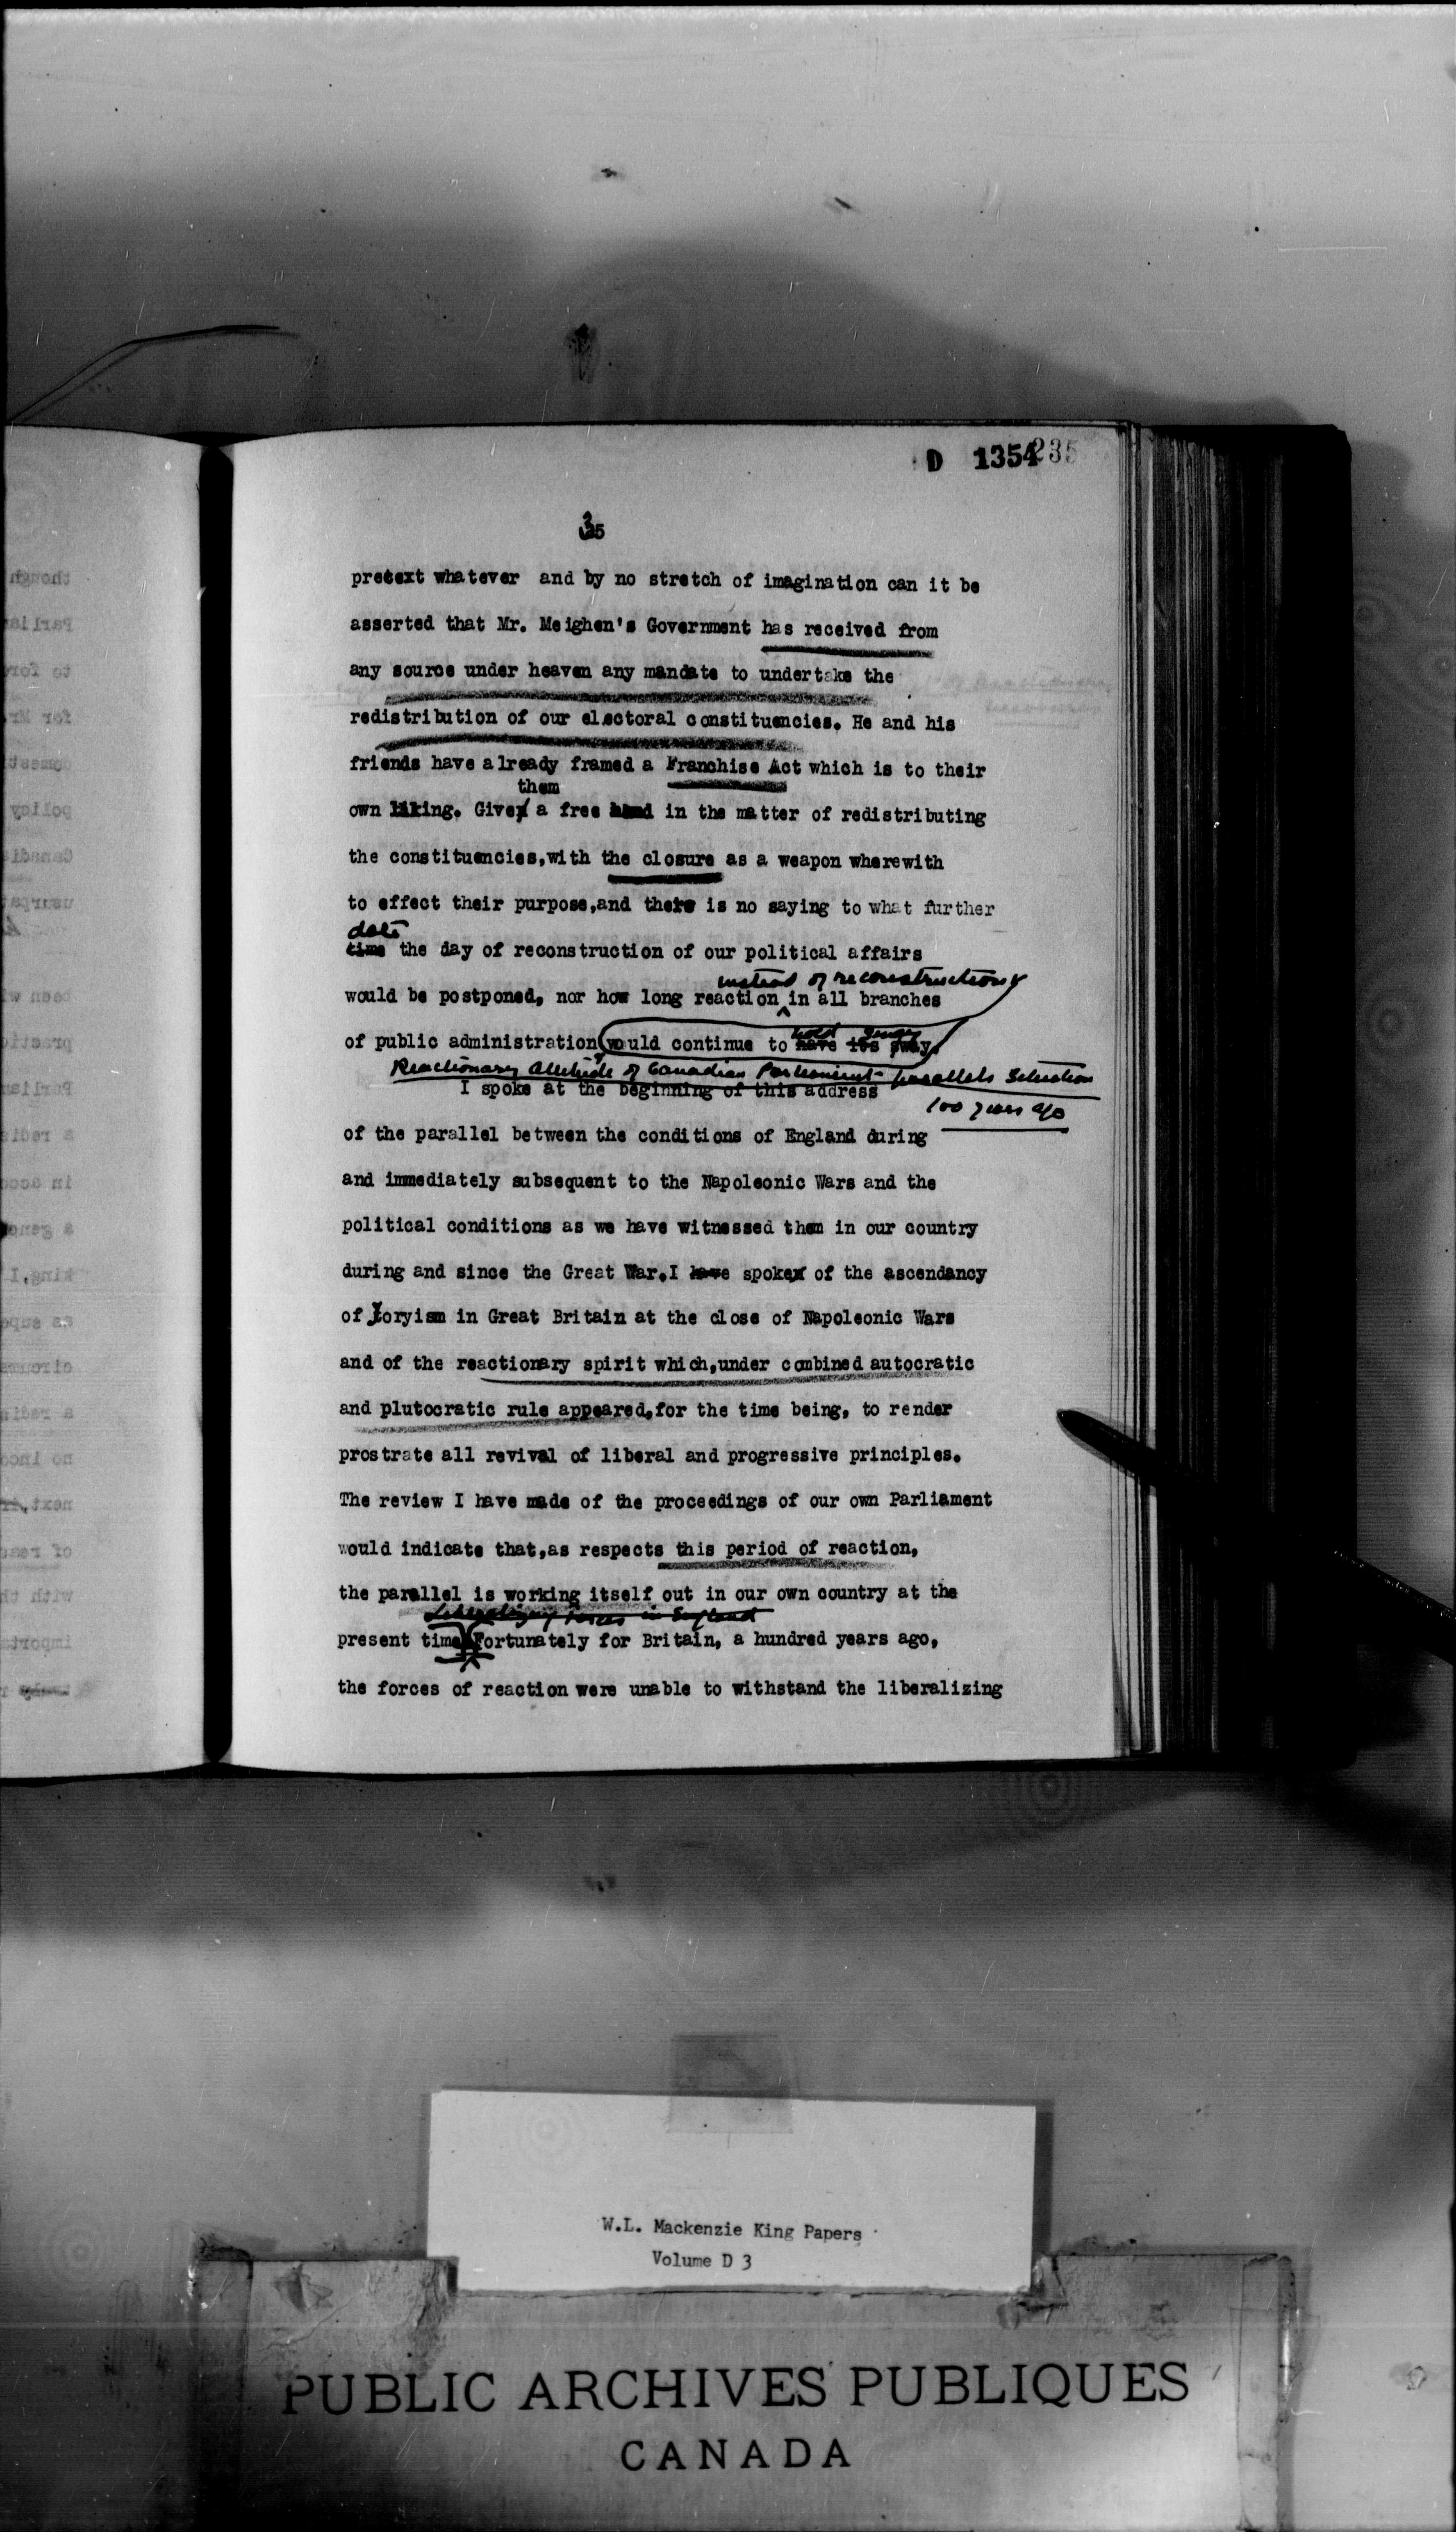 D 1354235
35
pretext whatever and by no stretch of imagination can it be
asserted that Mr. Meighen's Government has received from
any source under heaven any mandate to undertake the
redistribution of our electoral constituencies. He and his
friends have already framed a Franchise Act which is to their
them
own liking. Give a free hand in the matter of redistributing
the constituencies, with the closure as a weapon wherewith
to effect their purpose, and there is no saying to what further
date
time the day of reconstruction of our political affairs
instead of reconstruction
would be postponed, nor how long reaction in all branches
hold sway
of public administration would continue to have its sway.
Reactionary attitude of Canadian Parliament parallels situation
I spoke at the beginning of this address
100 years ago
of the parallel between the conditions of England during
and immediately subsequent to the Napoleonic Wars and the
political conditions as we have witnessed them in our country
during and since the Great War. I have spoke of the ascendancy
of Toryism in Great Britain at the close of Napoleonic Wars
and of the reactionary spirit which, under combined autocratic
and plutocratic rule appeared, for the time being, to render
prostrate all revival of liberal and progressive principles.
The review I have made of the proceedings of our own Parliament
would indicate that, as respects this period of reaction,
the parallel is working itself out in our own country at the
Liberalizing forces in England
present time Fortunately for Britain, a hundred years ago,
the forces of reaction were unable to withstand the liberalizing
W.L. Mackenzie King Papers
Volume D 3
PUBLIC ARCHIVES PUBLIQUES
CANADA